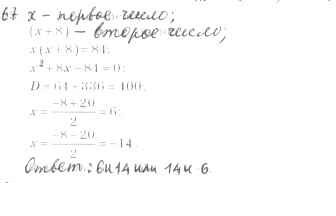 67 x – первое число;
(x + 8) – второе число;
x(x + 8) = 84;
x² + 8x - 84 = 0;
D = 64 + 336 = 400;
x = (-8 + 20)/2 = 6;
x = (-8 - 20)/2 = -14.
Ответ: 6 и 14 или 14 и 6.